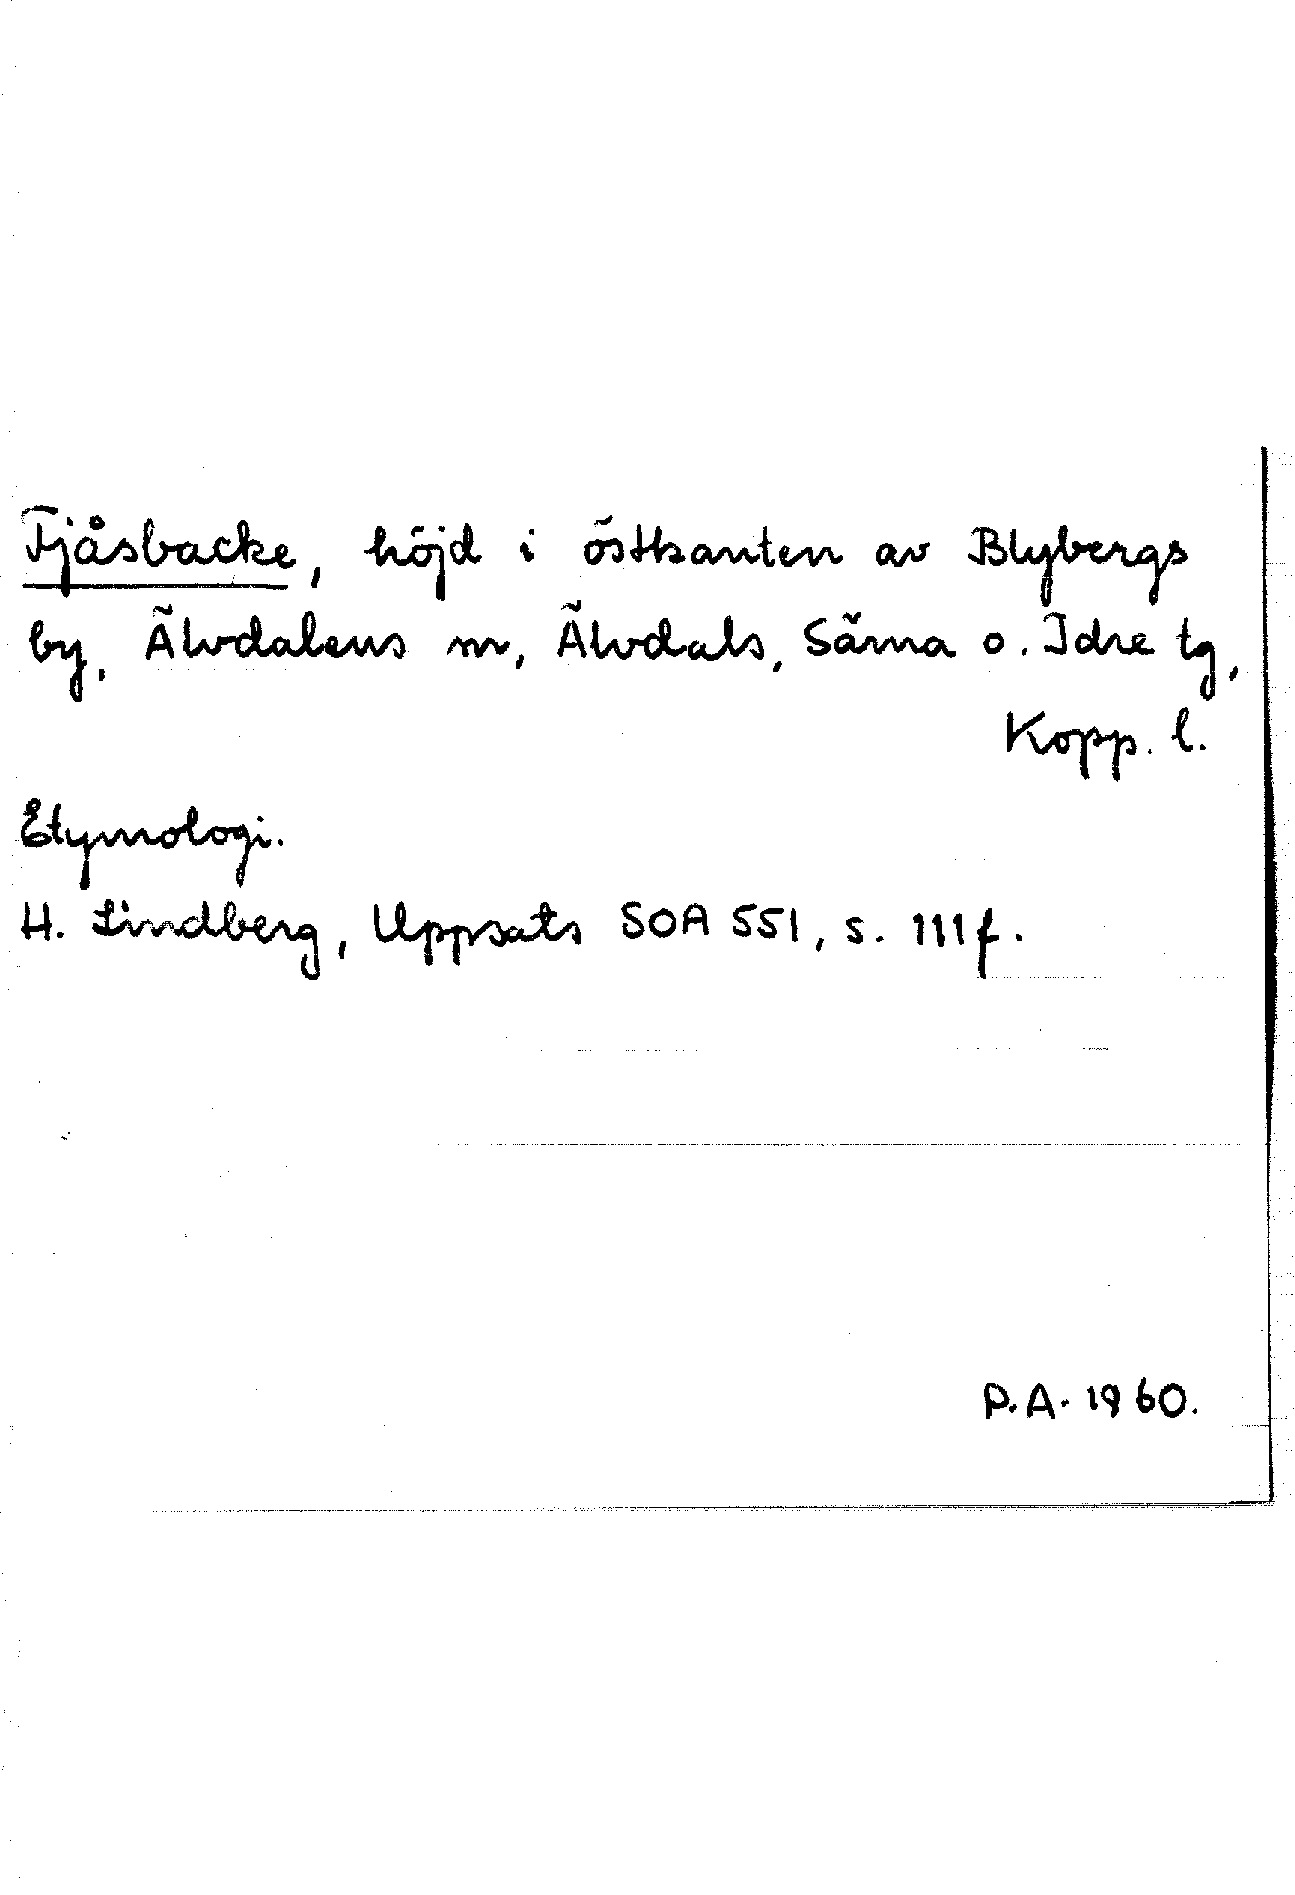 Fjåsbacke, höjd i östkanten av Blybergs
by, Älvdalens sn, Älvdals, Särna o. Idre tg,
Kopp. l.
Etymologi.
H. Lindberg, Uppsats SOA 551, s. 111 f.
P.A. 1960.